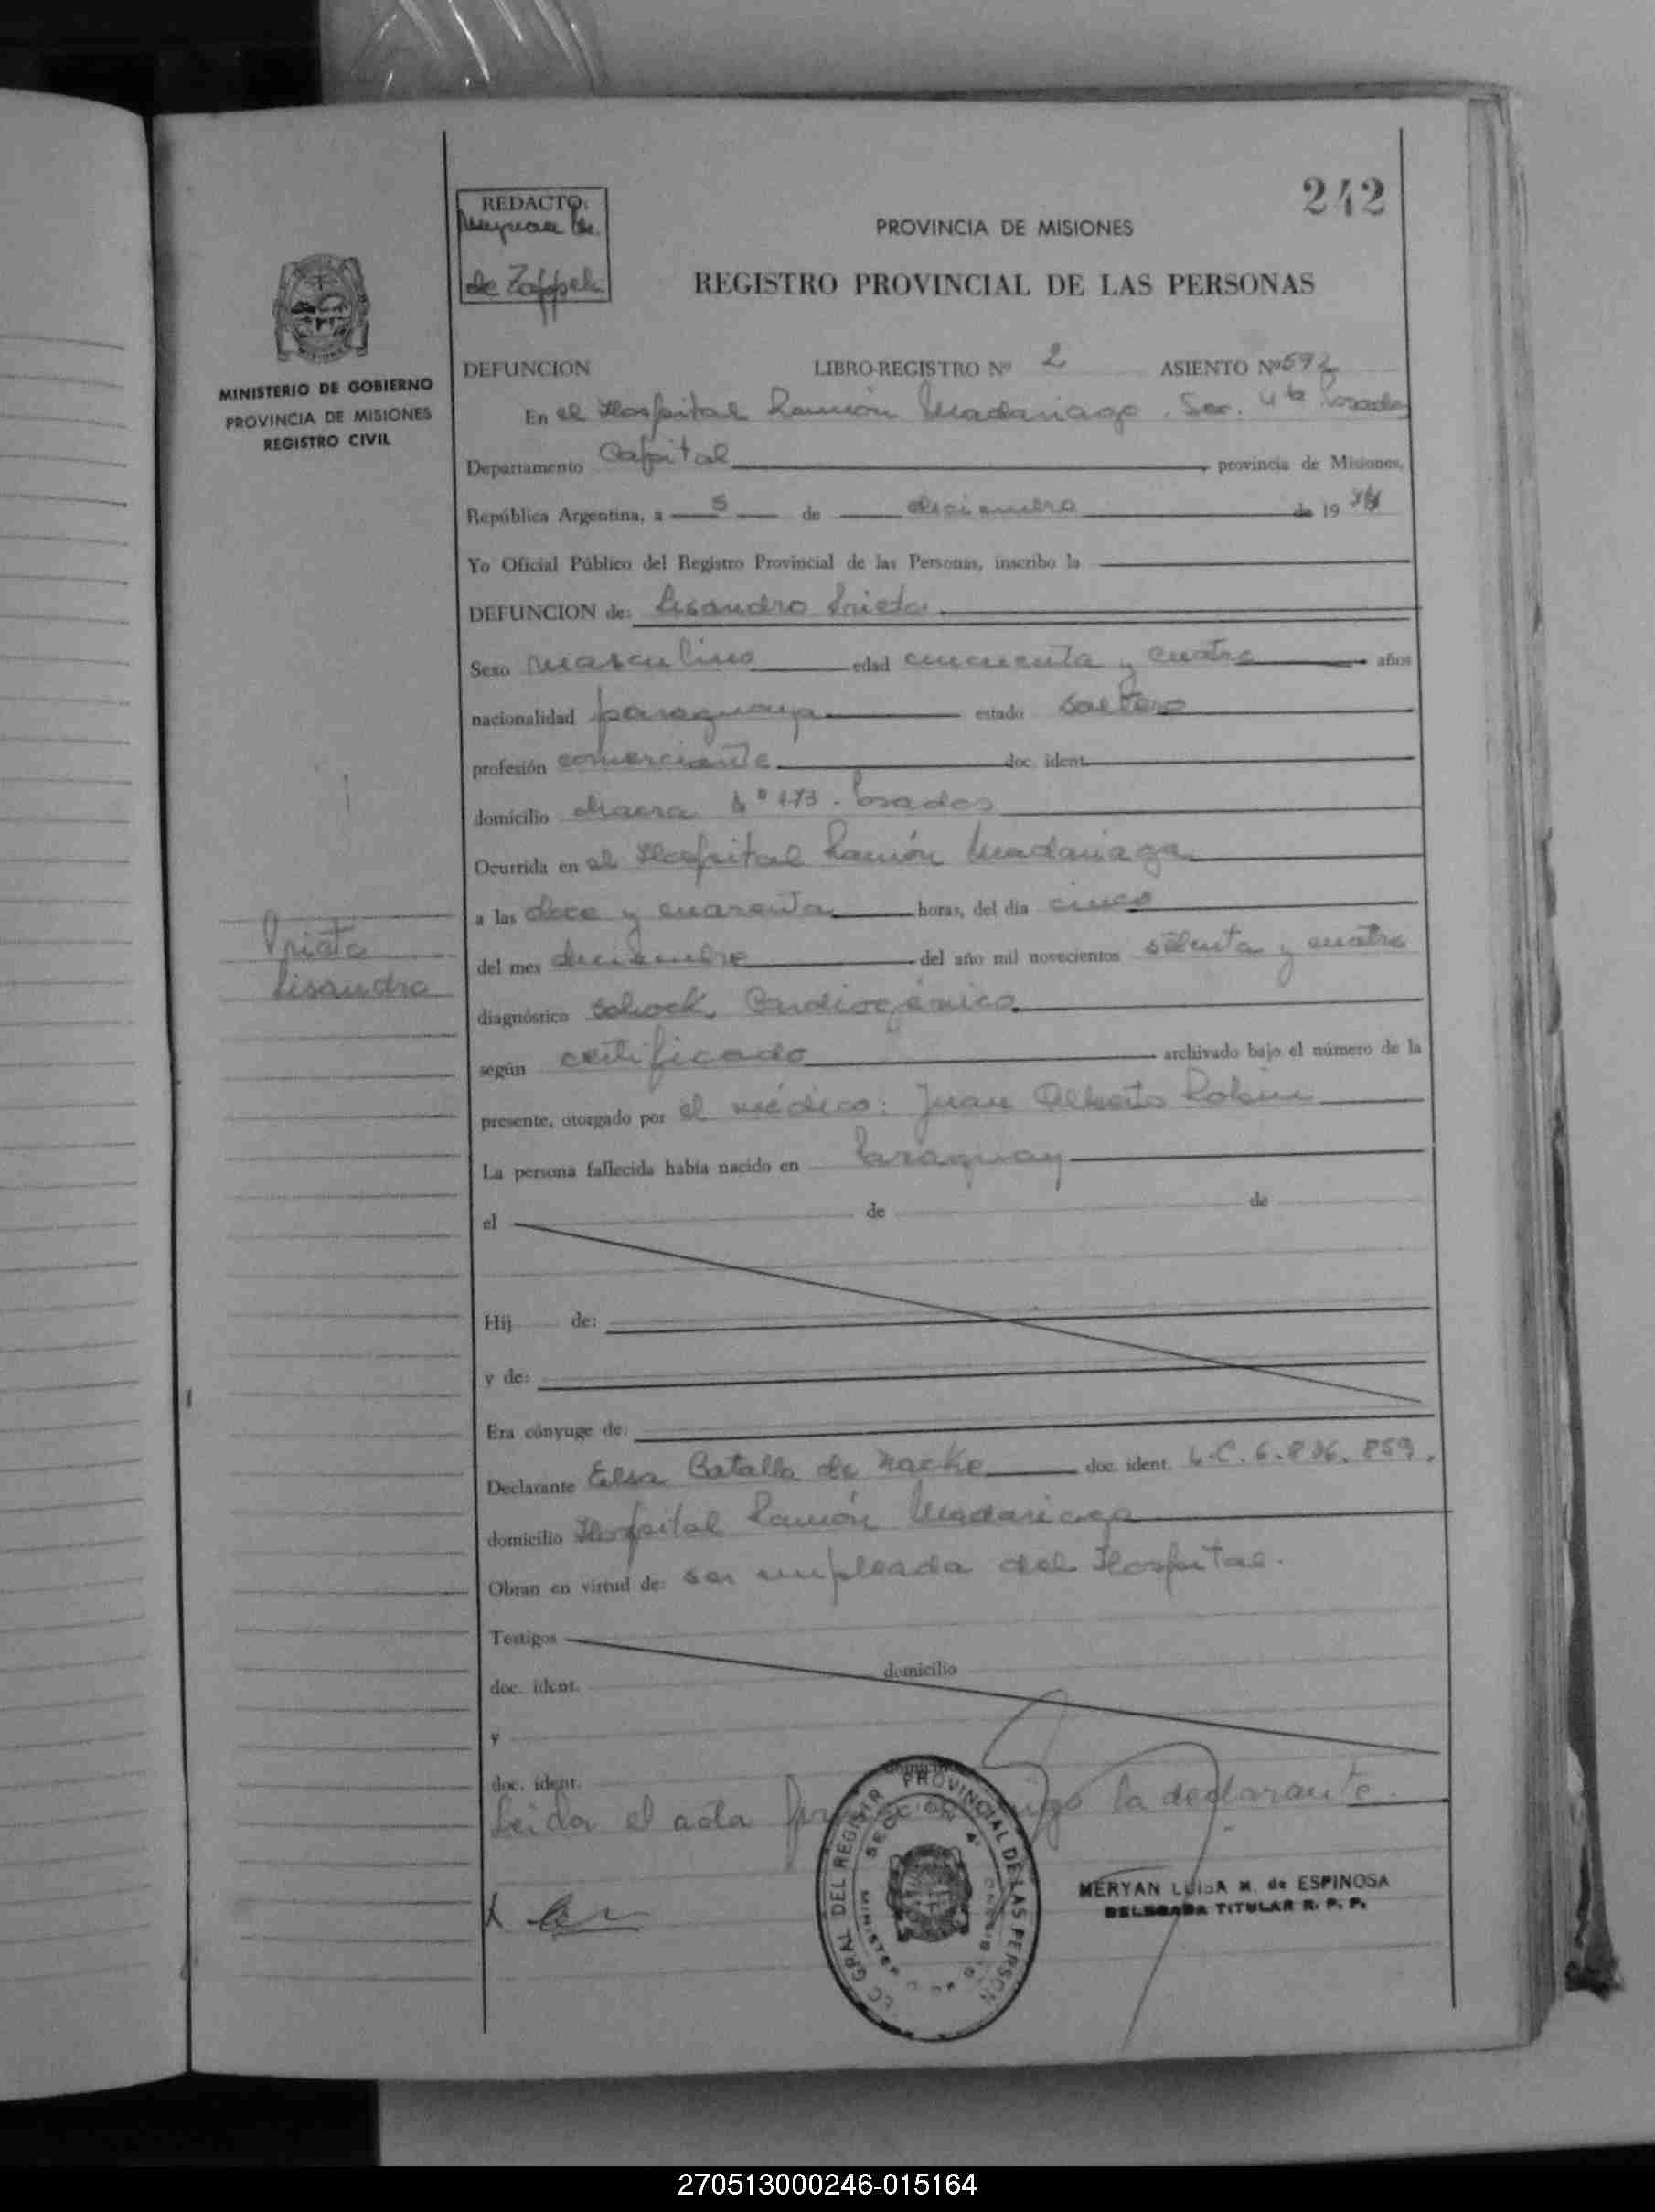 242
REDACTO:
de Zappel
PROVINCIA DE MISIONES
REGISTRO PROVINCIAL DE LAS PERSONAS
MINISTERIO DE GOBIERNO
PROVINCIA DE MISIONES
REGISTRO CIVIL
DEFUNCION LIBRO-REGISTRO Nº 2 ASIENTO Nº 592
En el Hospital Ramón Madariaga. Sec. 4ta Posadas
Departamento Capital provincia de Misiones,
República Argentina, a 5 de diciembre de 19 74
Yo Oficial Público del Registro Provincial de las Personas, inscribo la
DEFUNCION de: Lisandro Prieto
Sexo masculino edad cincuenta y cuatro años
nacionalidad paraguaya estado soltero
profesión comerciante doc. ident.
domicilio chacra Nº 173 - Posadas
Ocurrida en el Hospital Ramón Madariaga
a las doce y cuarenta horas, del día cinco
Prieto
Lisandro
del mes diciembre del año mil novecientos setenta y cuatro
diagnóstico Schock Cardiogénico
según certificado archivado bajo el número de la
presente, otorgado por el médico: Juan Alberto
La persona fallecida había nacido en Paraguay
el de de
Hij de:
y de:
Era cónyuge de:
Declarante Elsa Batalla de Nacke doc. ident. L.C. 6.836.859.
domicilio Hospital Ramón Madariaga
Obran en virtud de: ser empleada del Hospital.
Testigos
doc. ident. domicilio
y
doc. ident.
Leida el acta la declarante.
DEL REGISTR PROVINCIAL DE LAS PERSON
SECCION 4ª
MERYAN LUISA M. de ESPINOSA
DELEGADA TITULAR R. P. P.
270513000246-015164